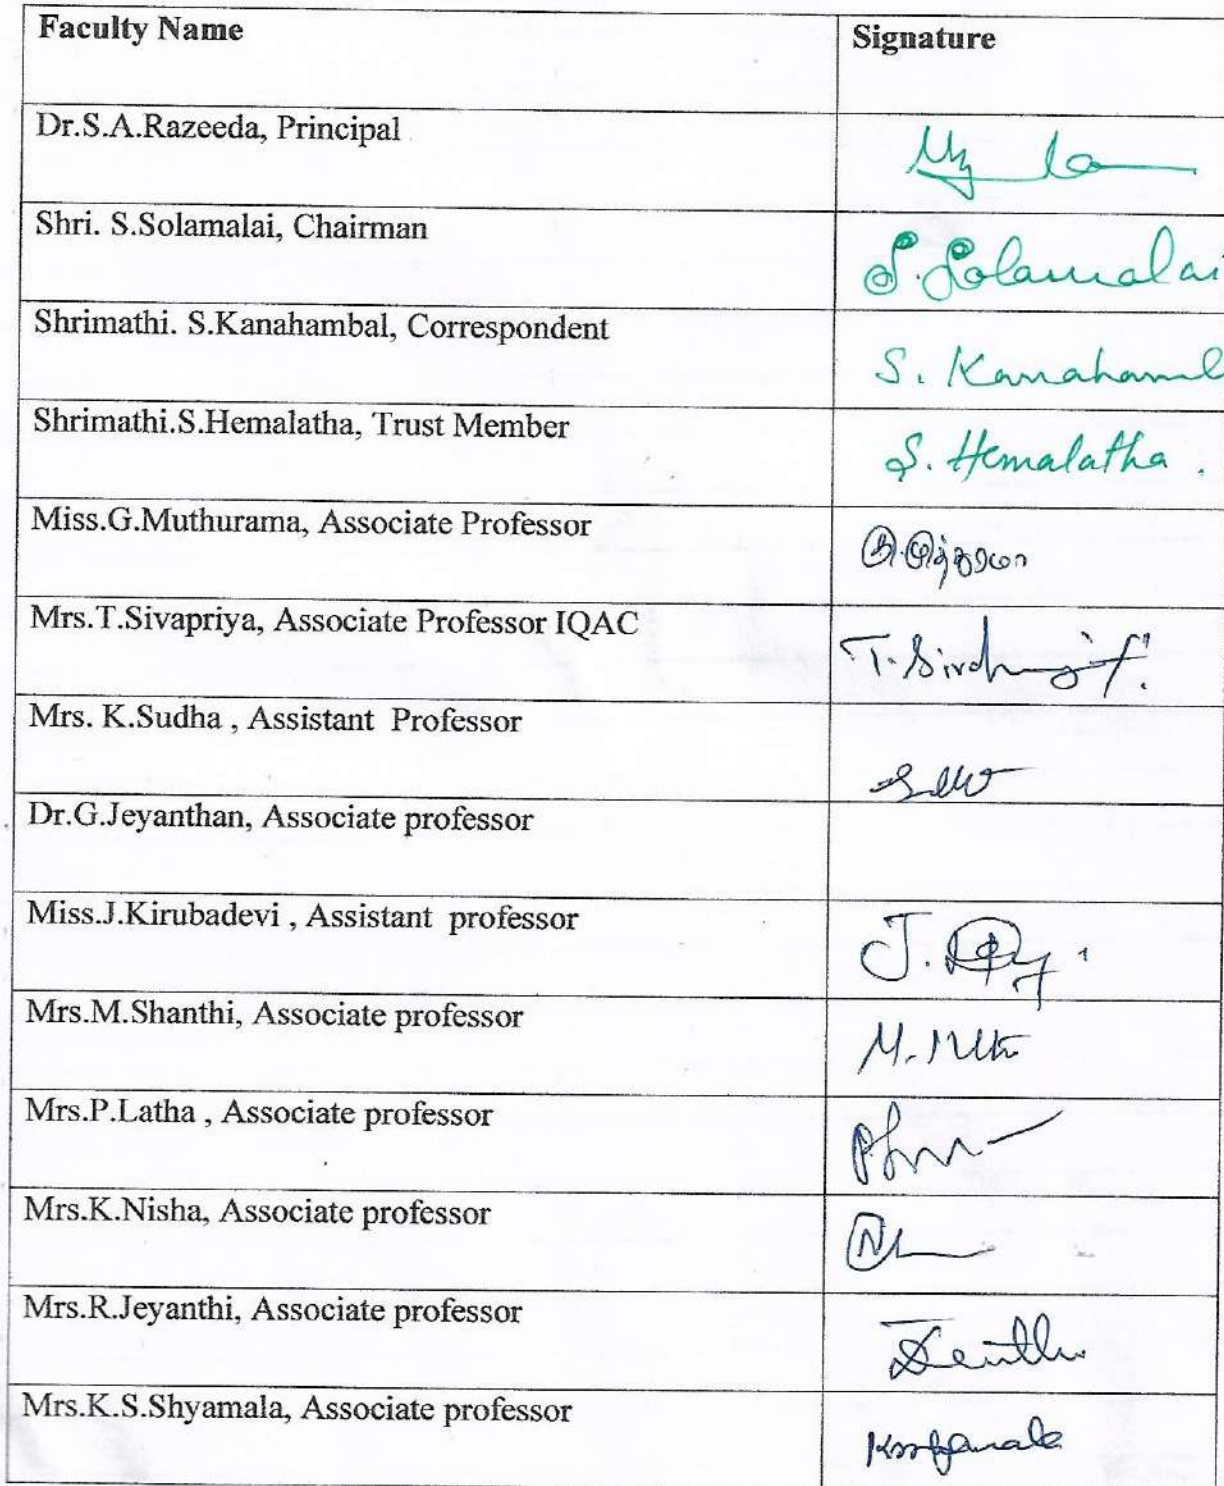 Faculty Name Signature
Dr.S.A.Razeeda, Principal
Shri. S.Solamalai, Chairman S.Solamalai
Shrimathi. S.Kanahambal, Correspondent S. Kanahambal
Shrimathi.S.Hemalatha, Trust Member S. Hemalatha .
Miss.G.Muthurama, Associate Professor
Mrs.T.Sivapriya, Associate Professor IQAC
Mrs. K.Sudha , Assistant Professor
Dr.G.Jeyanthan, Associate professor
Miss.J.Kirubadevi , Assistant professor
Mrs.M.Shanthi, Associate professor
Mrs.P.Latha , Associate professor
Mrs.K.Nisha, Associate professor
Mrs.R.Jeyanthi, Associate professor
Mrs.K.S.Shyamala, Associate professor